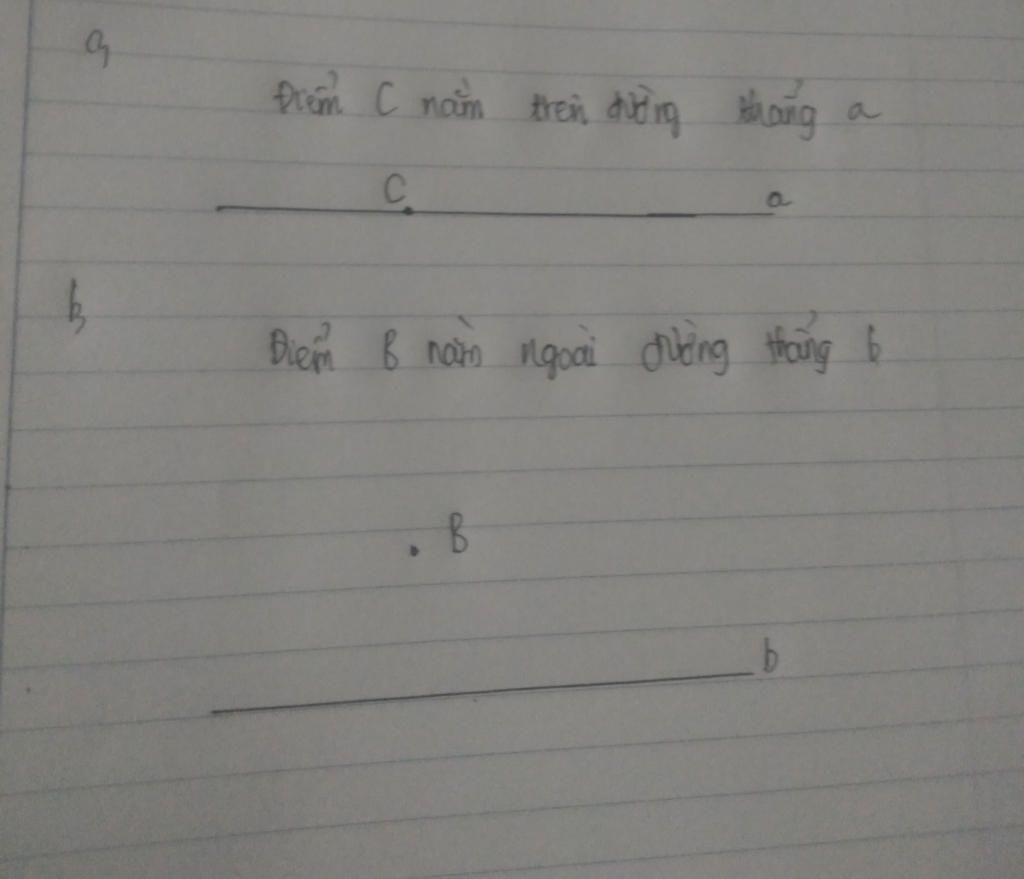 a,
Điểm C nằm trên đường thẳng a
C a
b,
Điểm B nằm ngoài đường thẳng b
B
b